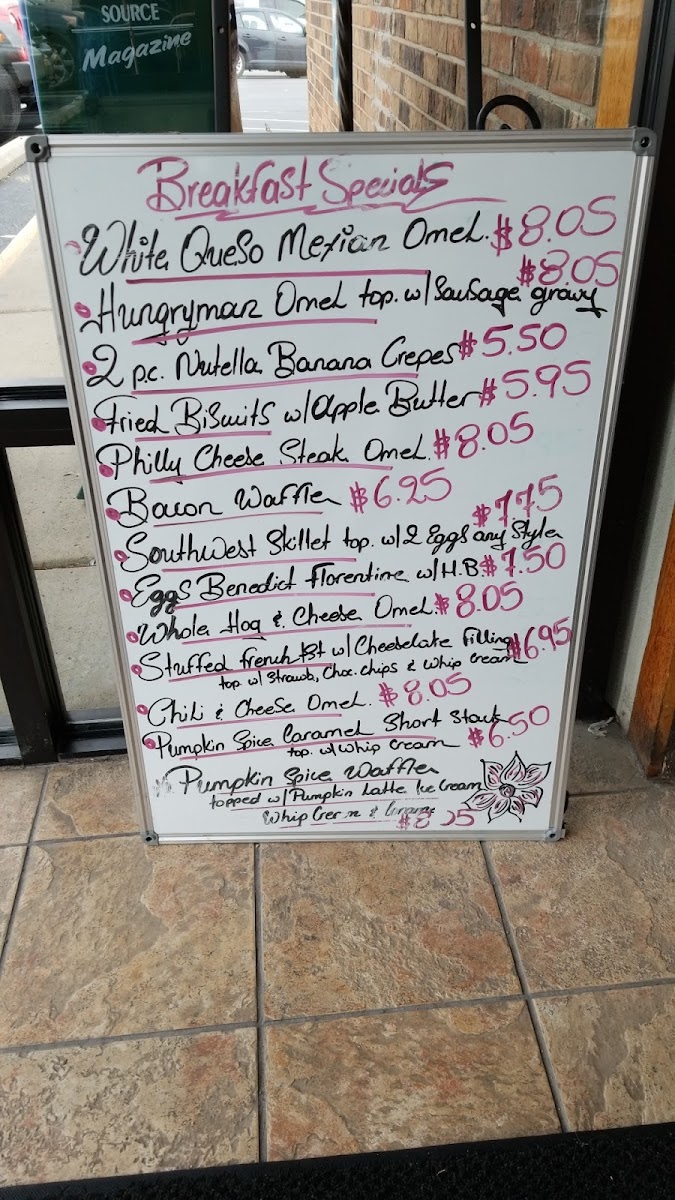 SOURCE
Magazine
Breakfast Specials
White Queso Mexian Omel. $8.05
$8.05
Hungryman Omel top. w/ Sausage gravy
2 p.c. Nutella Banana Crepes $5.50
Fried Biscuits w/ Apple Butter $5.95
Philly Cheese Steak Omel. $8.05
Bacon Waffle $6.25
$7.75
Southwest Skillet top. w/ 2 Eggs any Style
Eggs Benedict Florentine w/ H.B $7.50
Whole Hog & Cheese Omel. $8.05
Stuffed french tst w/ Cheeselate filling $6.95
top w/ Strawb, Choc. chips & Whip Cream
Chili & Cheese Omel. $8.05
Pumpkin Spice Caramel Short Stack $6.50
top. w/ Whip Cream
Pumpkin Spice Waffle
topped w/ Pumpkin Latte Ice Cream
Whip Cream &